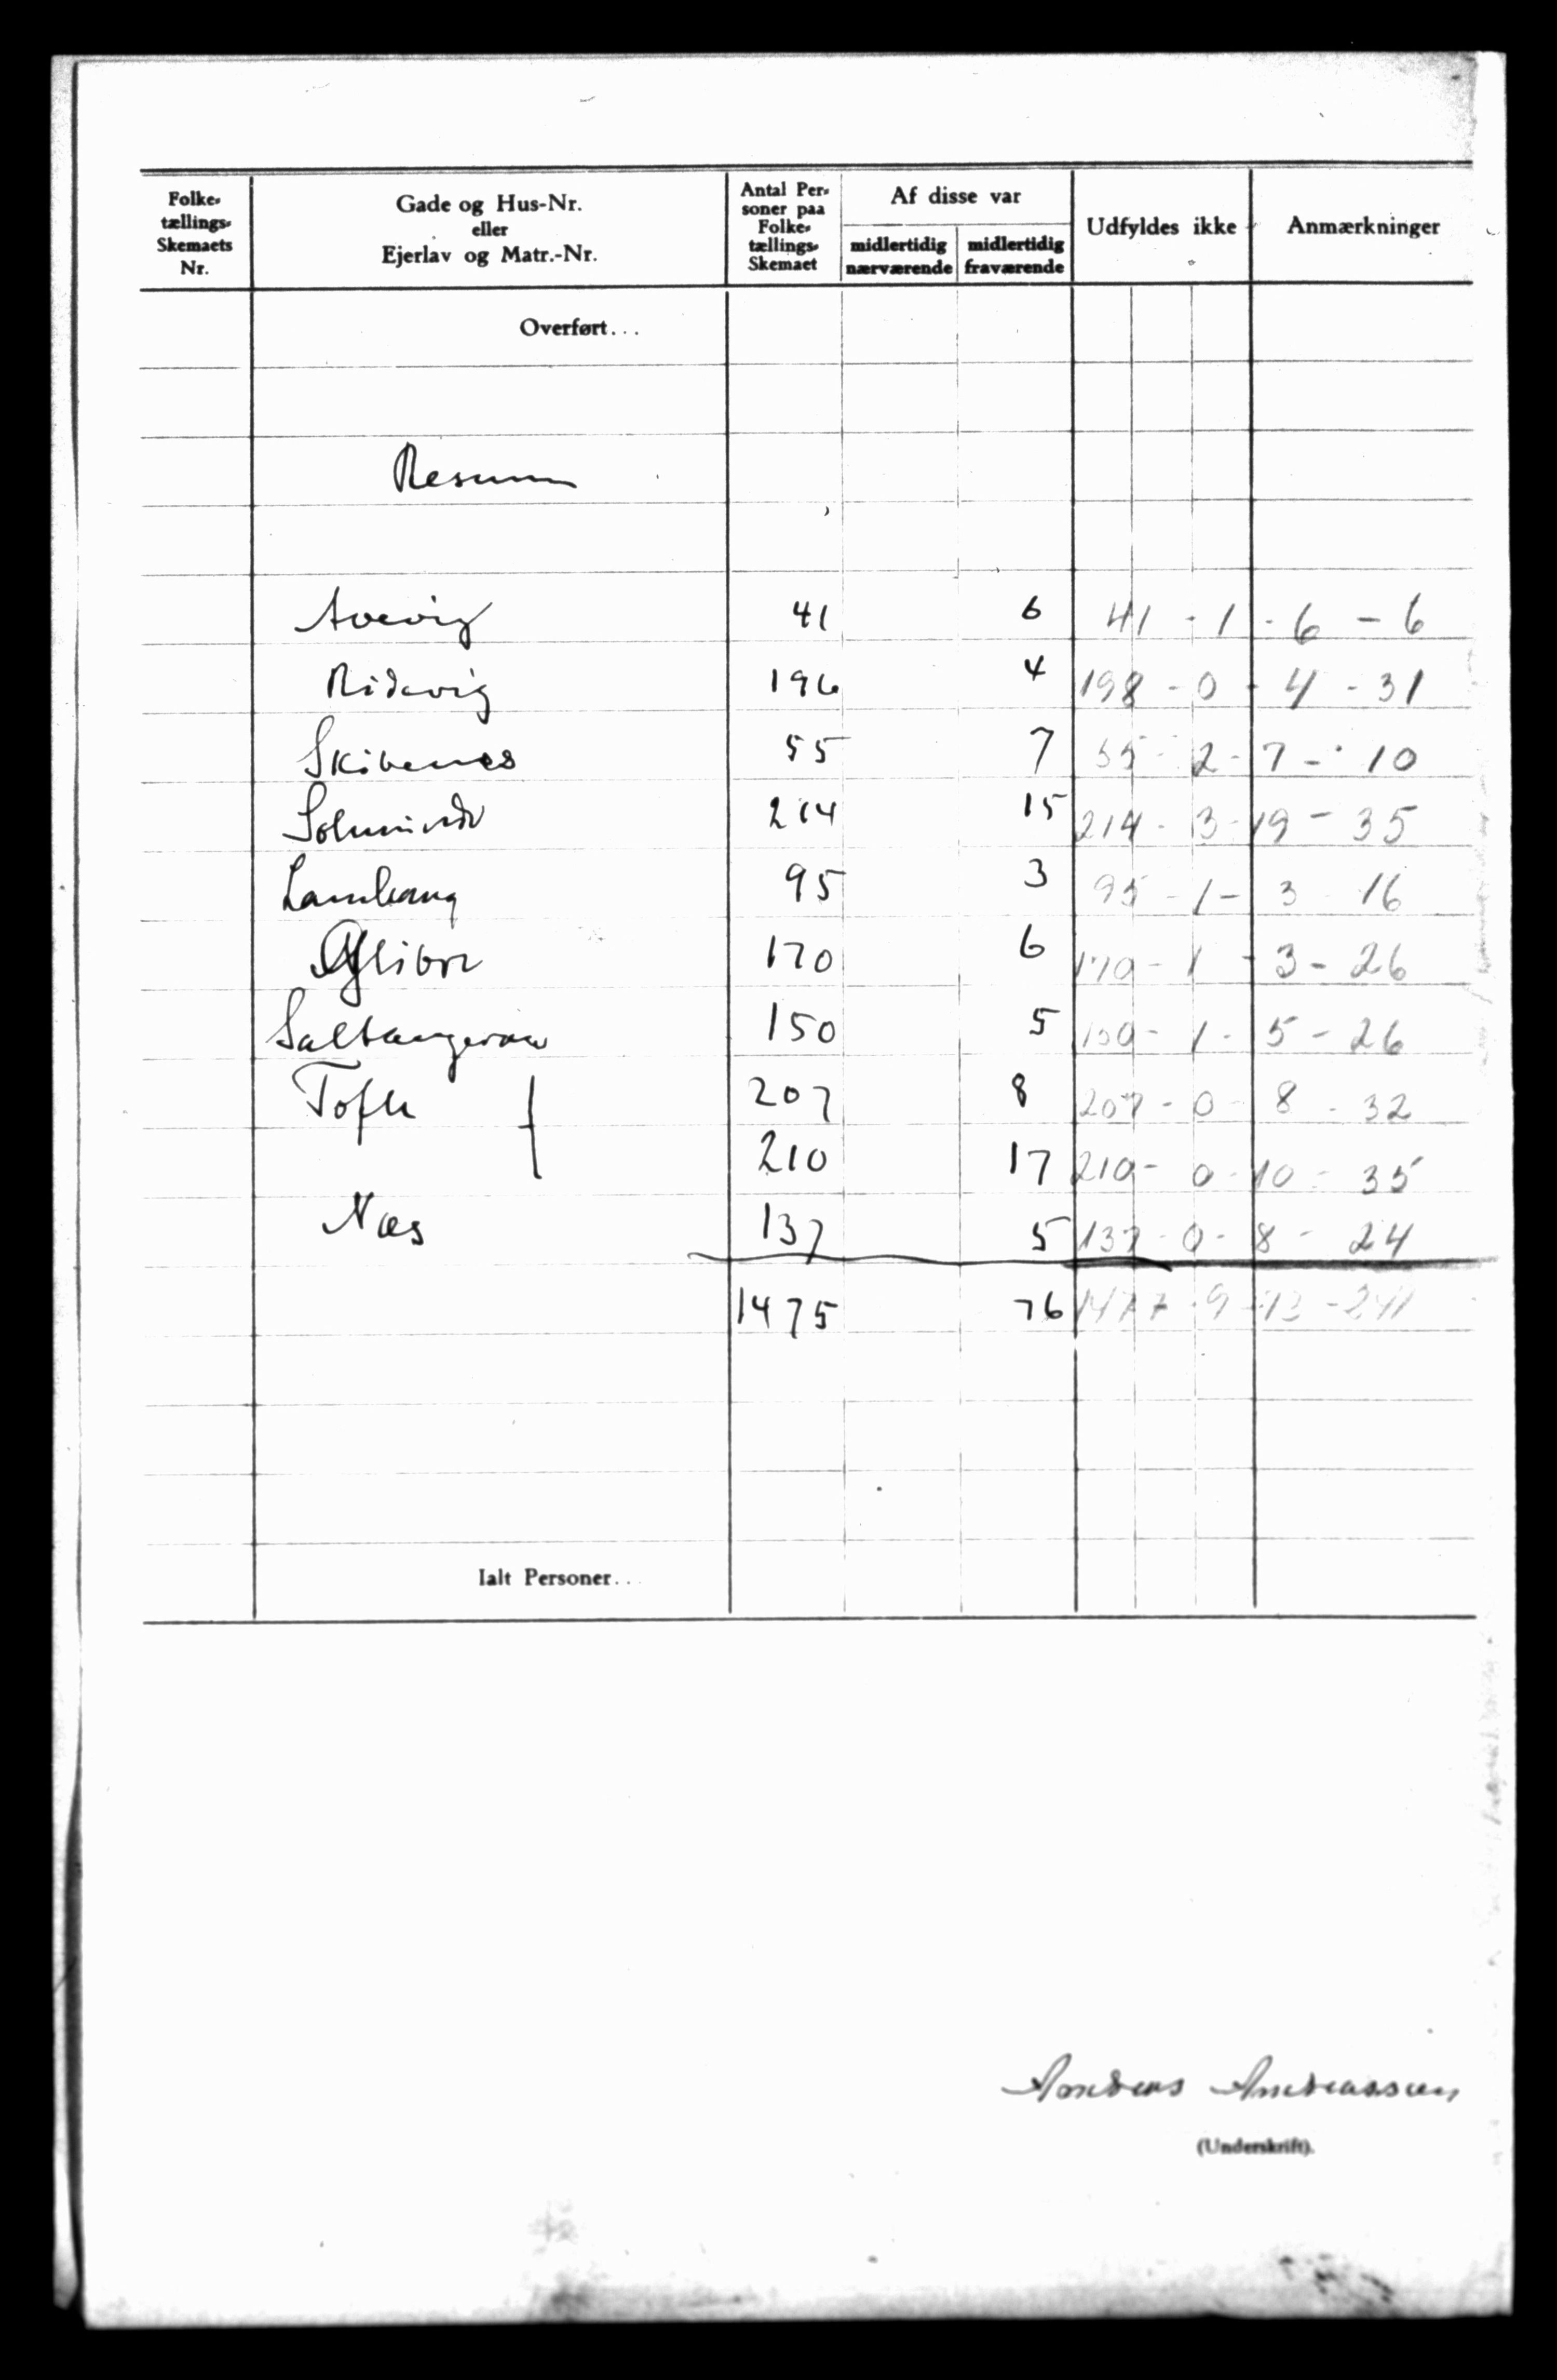 Folke-
tællings-
Skemaets
Nr.
Gade og Hus-Nr.
eller
Ejerlav og Matr.-Nr.
Antal Per-
soner paa
Folke-
tællings-
Skemaet
Af disse var
midlertidig
nærværende
midlertidig
fraværende
Udfyldes ikke
Anmærkninger
Overført...
Resume
41 6 41 - 1 - 6 - 6
Ridevig 196 4 198 - 0 - 4 - 31
Skibenes 55 7 55 - 2 - 7 - 10
Solmunde 214 15 214 - 3 - 19 - 35
Lambang 95 3 95 - 1 - 3 - 16
Glibre 170 6 170 - 1 - 3 - 26
Saltangeraa 150 5 150 - 1 - 5 - 26
Tofte 207 8 207 - 0 - 8 - 32
210 17 210 - 0 - 10 - 35
Næs 137 5 137 - 0 - 8 - 24
1475 76 1477 - 9 - 73 - 241
Ialt Personer...
Andreas Andreassen
(Underskrift).